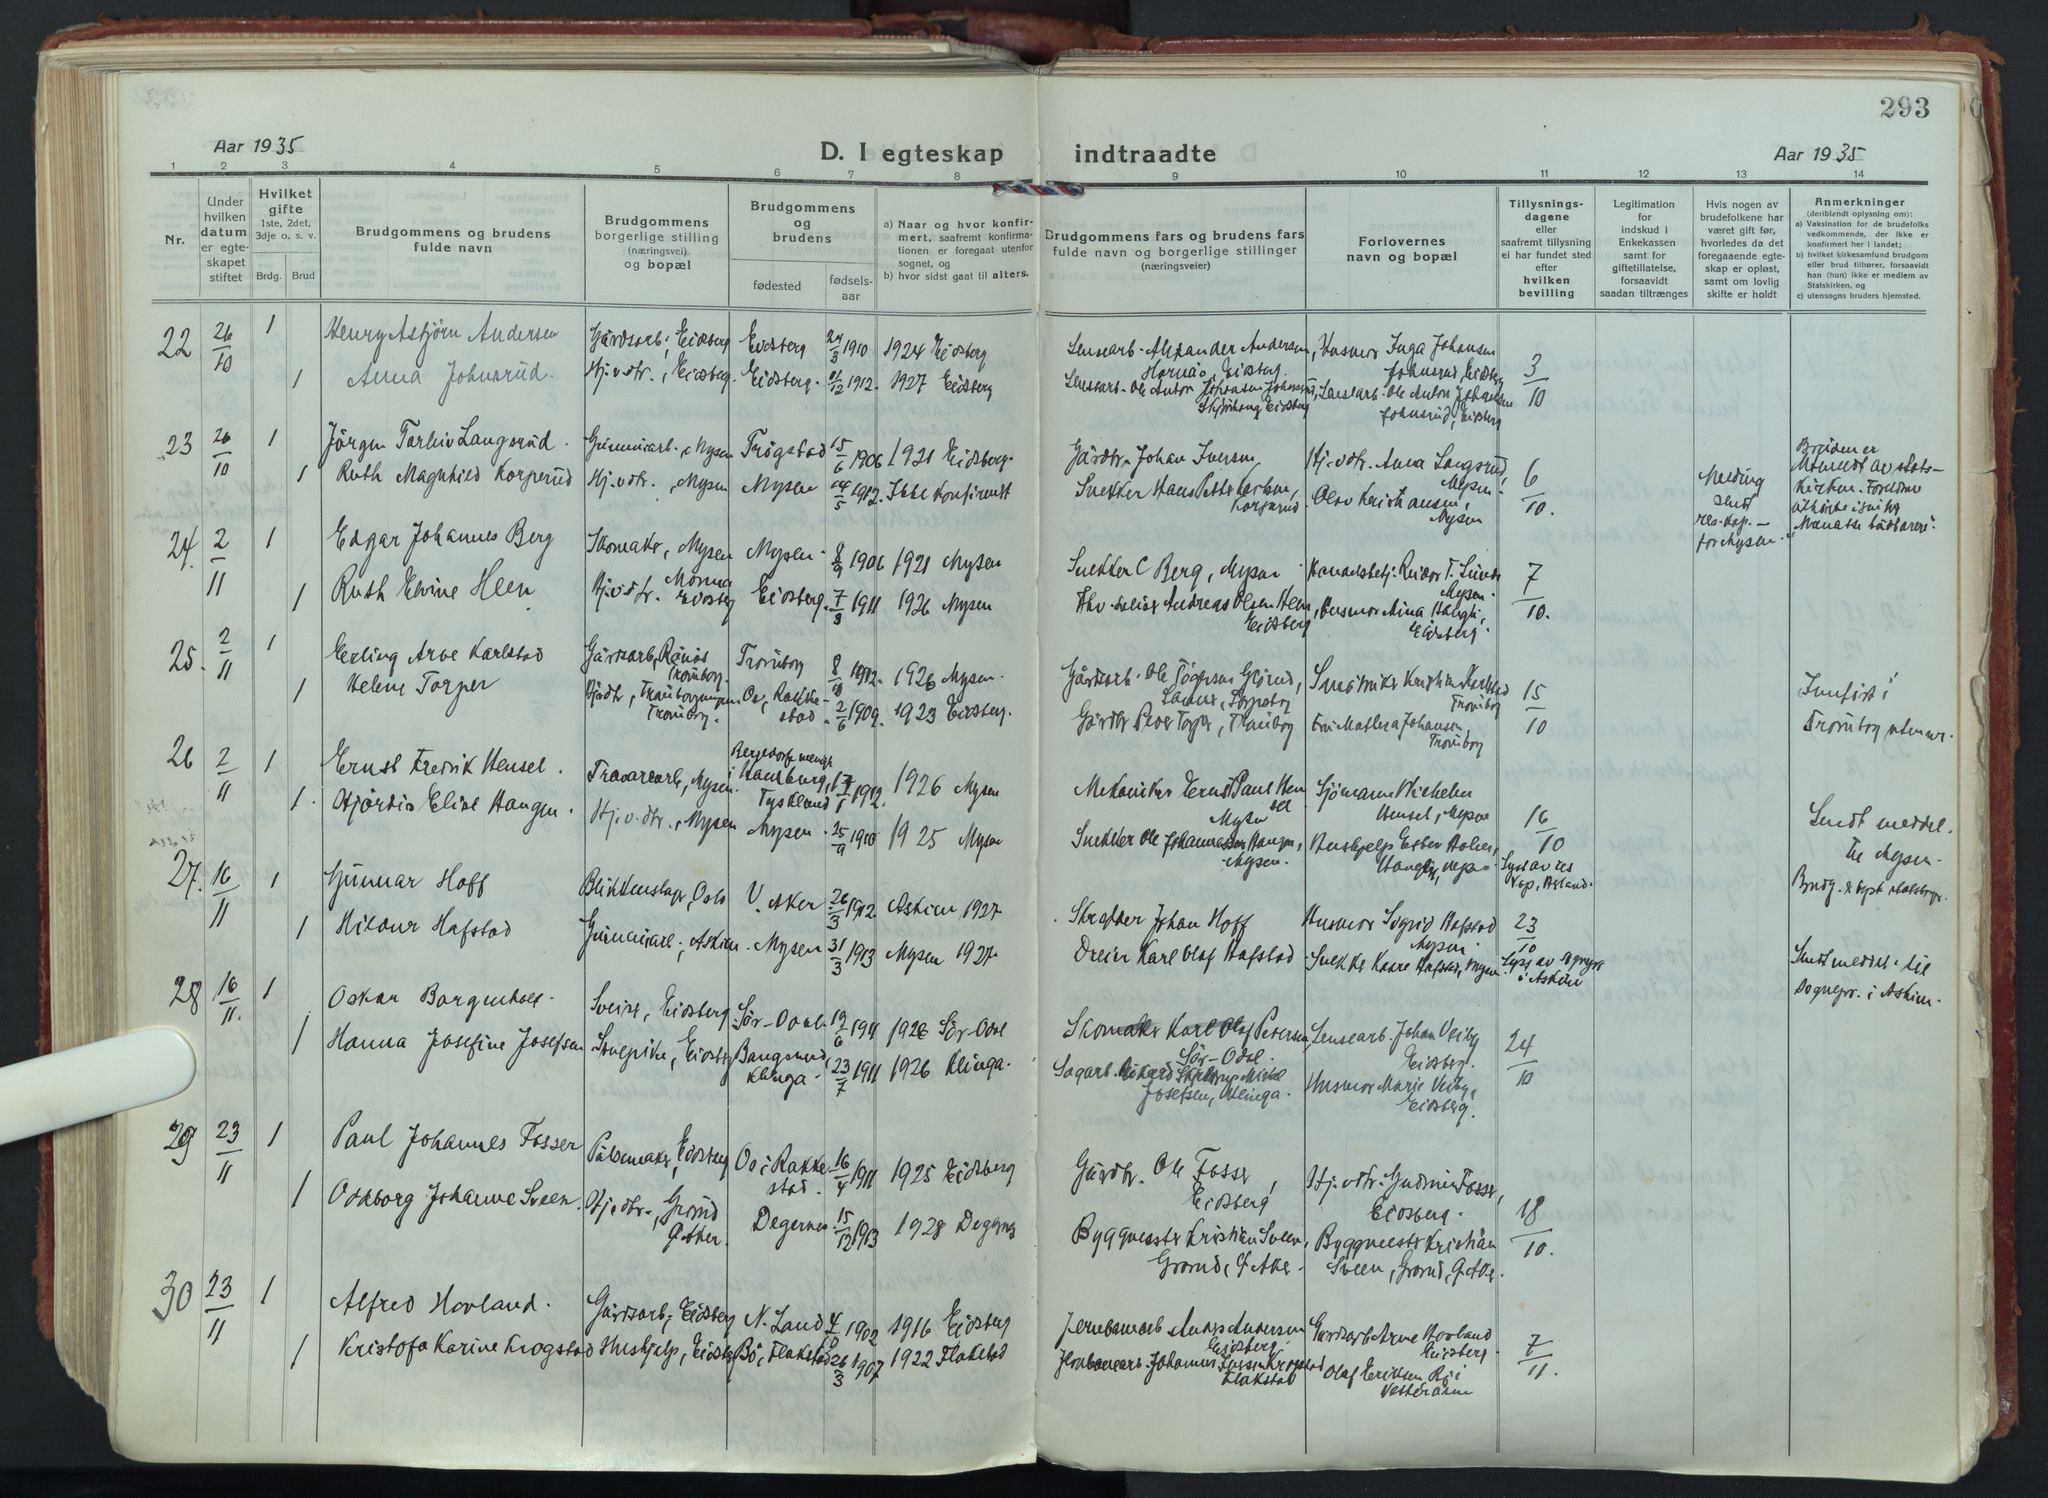 293
Aar 1935
D. I egteskap indtraadte
Aar 1935
1 2 3 4 5 6 7 8 9 10 11 12 13 14
Nr.
Under hvilken datum er egteskapet stiftet
Hvilket gifte 1ste, 2det, 3dje o. s. v.
Brdg. Brud
Brudgommens og brudens fulde navn
Brudgommens borgerlige stilling (næringsvei) og bopæl
Brudgommens og brudens
fødested
fødselsaar
a) Naar og hvor konfirmert, saafremt konfirmationen er foregaat utenfor sognet, og
b) hvor sidst gaat til alters.
Brudgommens fars og brudens fars fulde navn og borgerlige stillinger (næringsveier)
Forlovernes navn og bopæl
Tillysningsdagene eller saafremt tillysning ei har fundet sted efter hvilken bevilling
Legitimation for indskud i Enkekassen samt for giftetillatelse, forsaavidt saadan tiltrænges
Hvis nogen av brudefolkene har været gift før, hvorledes da det foregaaende egteskap er opløst, samt om lovlig skifte er holdt
Anmerkninger (deriblendt oplysning om):
a) Vaksination for de brudefolks vedkommende, der ikke er konfirmert her i landet;
b) hvilket kirkesamfund brudgom eller brud tilhører, forsaavidt han (hun) ikke er medlem av Statskirken, og
c) utensogns bruders hjemsted.
22 26/10 1 Henry Asbjørn Andersen Gårdsarb., Eidsberg Eidsberg 24/3 1910 1924 Eidsberg
Lensearb. Alexander Andersen, Eidsberg. Husmor Inga Johansen Johnsrud, Eidsberg 3/10
1 Anna Johnsrud. Hj.v.dtr., Eidsberg. Eidsberg. 1912. 1927 Eidsberg
Lensearb. Ole Anton Johansen Johnsrud, Eidsberg Lensearb. Ole Anton Johansen Johnsrud, Eidsberg
23 26/10 1 Jörgen Torleiv Langsrud. Gummiarb., Mysen Trøgstad 15/6 1906 1921 Eidsberg.
Gårdbr. Johan Iversen Hj.v.dtr. Anna Langsrud, Mysen. 6/10.
1 Ruth Magnhild Korperud Hj.v.dtr., Mysen Mysen 1912. Ikke konfirmert
Snekker Hans Petter Karlsen, Korperud. Olav Kristiansen, Mysen
Melding sendt
for Mysen.
Bruden er utmeldt av statskirken.
24. 2/11 1 Edgar Johannes Berg Skomaker, Mysen Mysen. 8/9 1906 1921 Mysen
Snekker C Berg, Mysen Mysen. 7/10.
1 Ruth Elvine Heen Hj.v.dtr. Eidsberg Eidsberg. 7/8 1911 1926 Mysen
Andreas Olsen Heen, Eidsberg Husmor Mina Haugli, Eidsberg.
25. 2/11 1 Erling Arve Karlstad Gårdsarb., Trømborg. Trømborg 8/10 1912. 1926 Mysen.
Gårdsarb. Ole Småbruker Kristian Karlstad Trømborg 15/10
1 Helene Torper Trømborg. Os, Rakkestad. 2/6 1909. 1923 Eidsberg.
Gårdbr. Peder Torper, Trømborg Fru Mathea Johansen, Trømborg
Innført i Trømborg
26 2/11 1 Ernst Fredrik Hensel. Mysen. Bergedorf menigh. i Hamburg, Tyskland 1912. 1926 Mysen
Mekaniker Ernst Paul Hensel Mysen Sjömann Wilhelm Hensel, Mysen 16/10
1. Hjördis Elise Haugen. Hj.v.dtr., Mysen Mysen. 25/9 1910 1925 Mysen
Snekker Ole Johannessen Haugen, Mysen.
Sendt meddel. til Mysen.
27. 16/11 1 Gunnar Hoff Blikkenslager, Oslo V. Aker 26/3 1912 Askim 1927
Skredder Johan Hoff Husmor Sigrid Hafstad Mysen. 23/10
1 Hildur Hafstad Gummiarb., Askim. Mysen 31/3 1913 Mysen 1927.
Dreier Karl Olaf Hafstad. Snekker Kaare Hafstad, Mysen
Lyst av sognepr. i Askim
Sendt meddel. til sognepr. i Askim.
28 16/11. 1 Oskar Borgenholt. Sveiser, Eidsberg Sør-Odal. 19/6 1911 1926 Sør-Odal
Skomaker Karl Olaf Petersen, Sør-Odal. Lensearb. Johan Veiby, Eidsberg. 24/10
1 Hanna Josefine Josefsen Eidsberg Bangsund, Klinga. 23/7 1911 1926 Klinga.
Sagarb. Josefsen, Klinga. Husmor Marie Veiby, Eidsberg.
29 23/11 1 Paul Johannes Fosser Pölsemaker, Eidsberg Os i Rakkestad. 16/4 1911 1925 Eidsberg
Gårdbr. Ole Fosser, Eidsberg Hj.v.dtr. Gudrun Fosser, Eidsberg. 18/10.
1 Oddborg Johanne Sveen. Hj.v.dtr., Grorud Ø. Aker. Degernes 15/12 1913 1928 Degernes
Byggmester Kristian Sveen, Grorud, Ø. Aker. Byggmester Kristian Sveen, Grorud, Ø. Aker.
30 23/11 1 Alfred Hovland. Gårdsarb., Eidsberg N. Land 1902 1916 Eidsberg
Jernbanearb. Anders Andersen Eidsberg. Gårdsarb. Arne Hovland Eidsberg. 7/11.
1 Kristofa Karine Krogstad Hushjelp, Eidsberg Bö i Flakstad 26/3 1907 1922 Flakstad
Johannes Krogstad Flakstad Olaf Eriksen